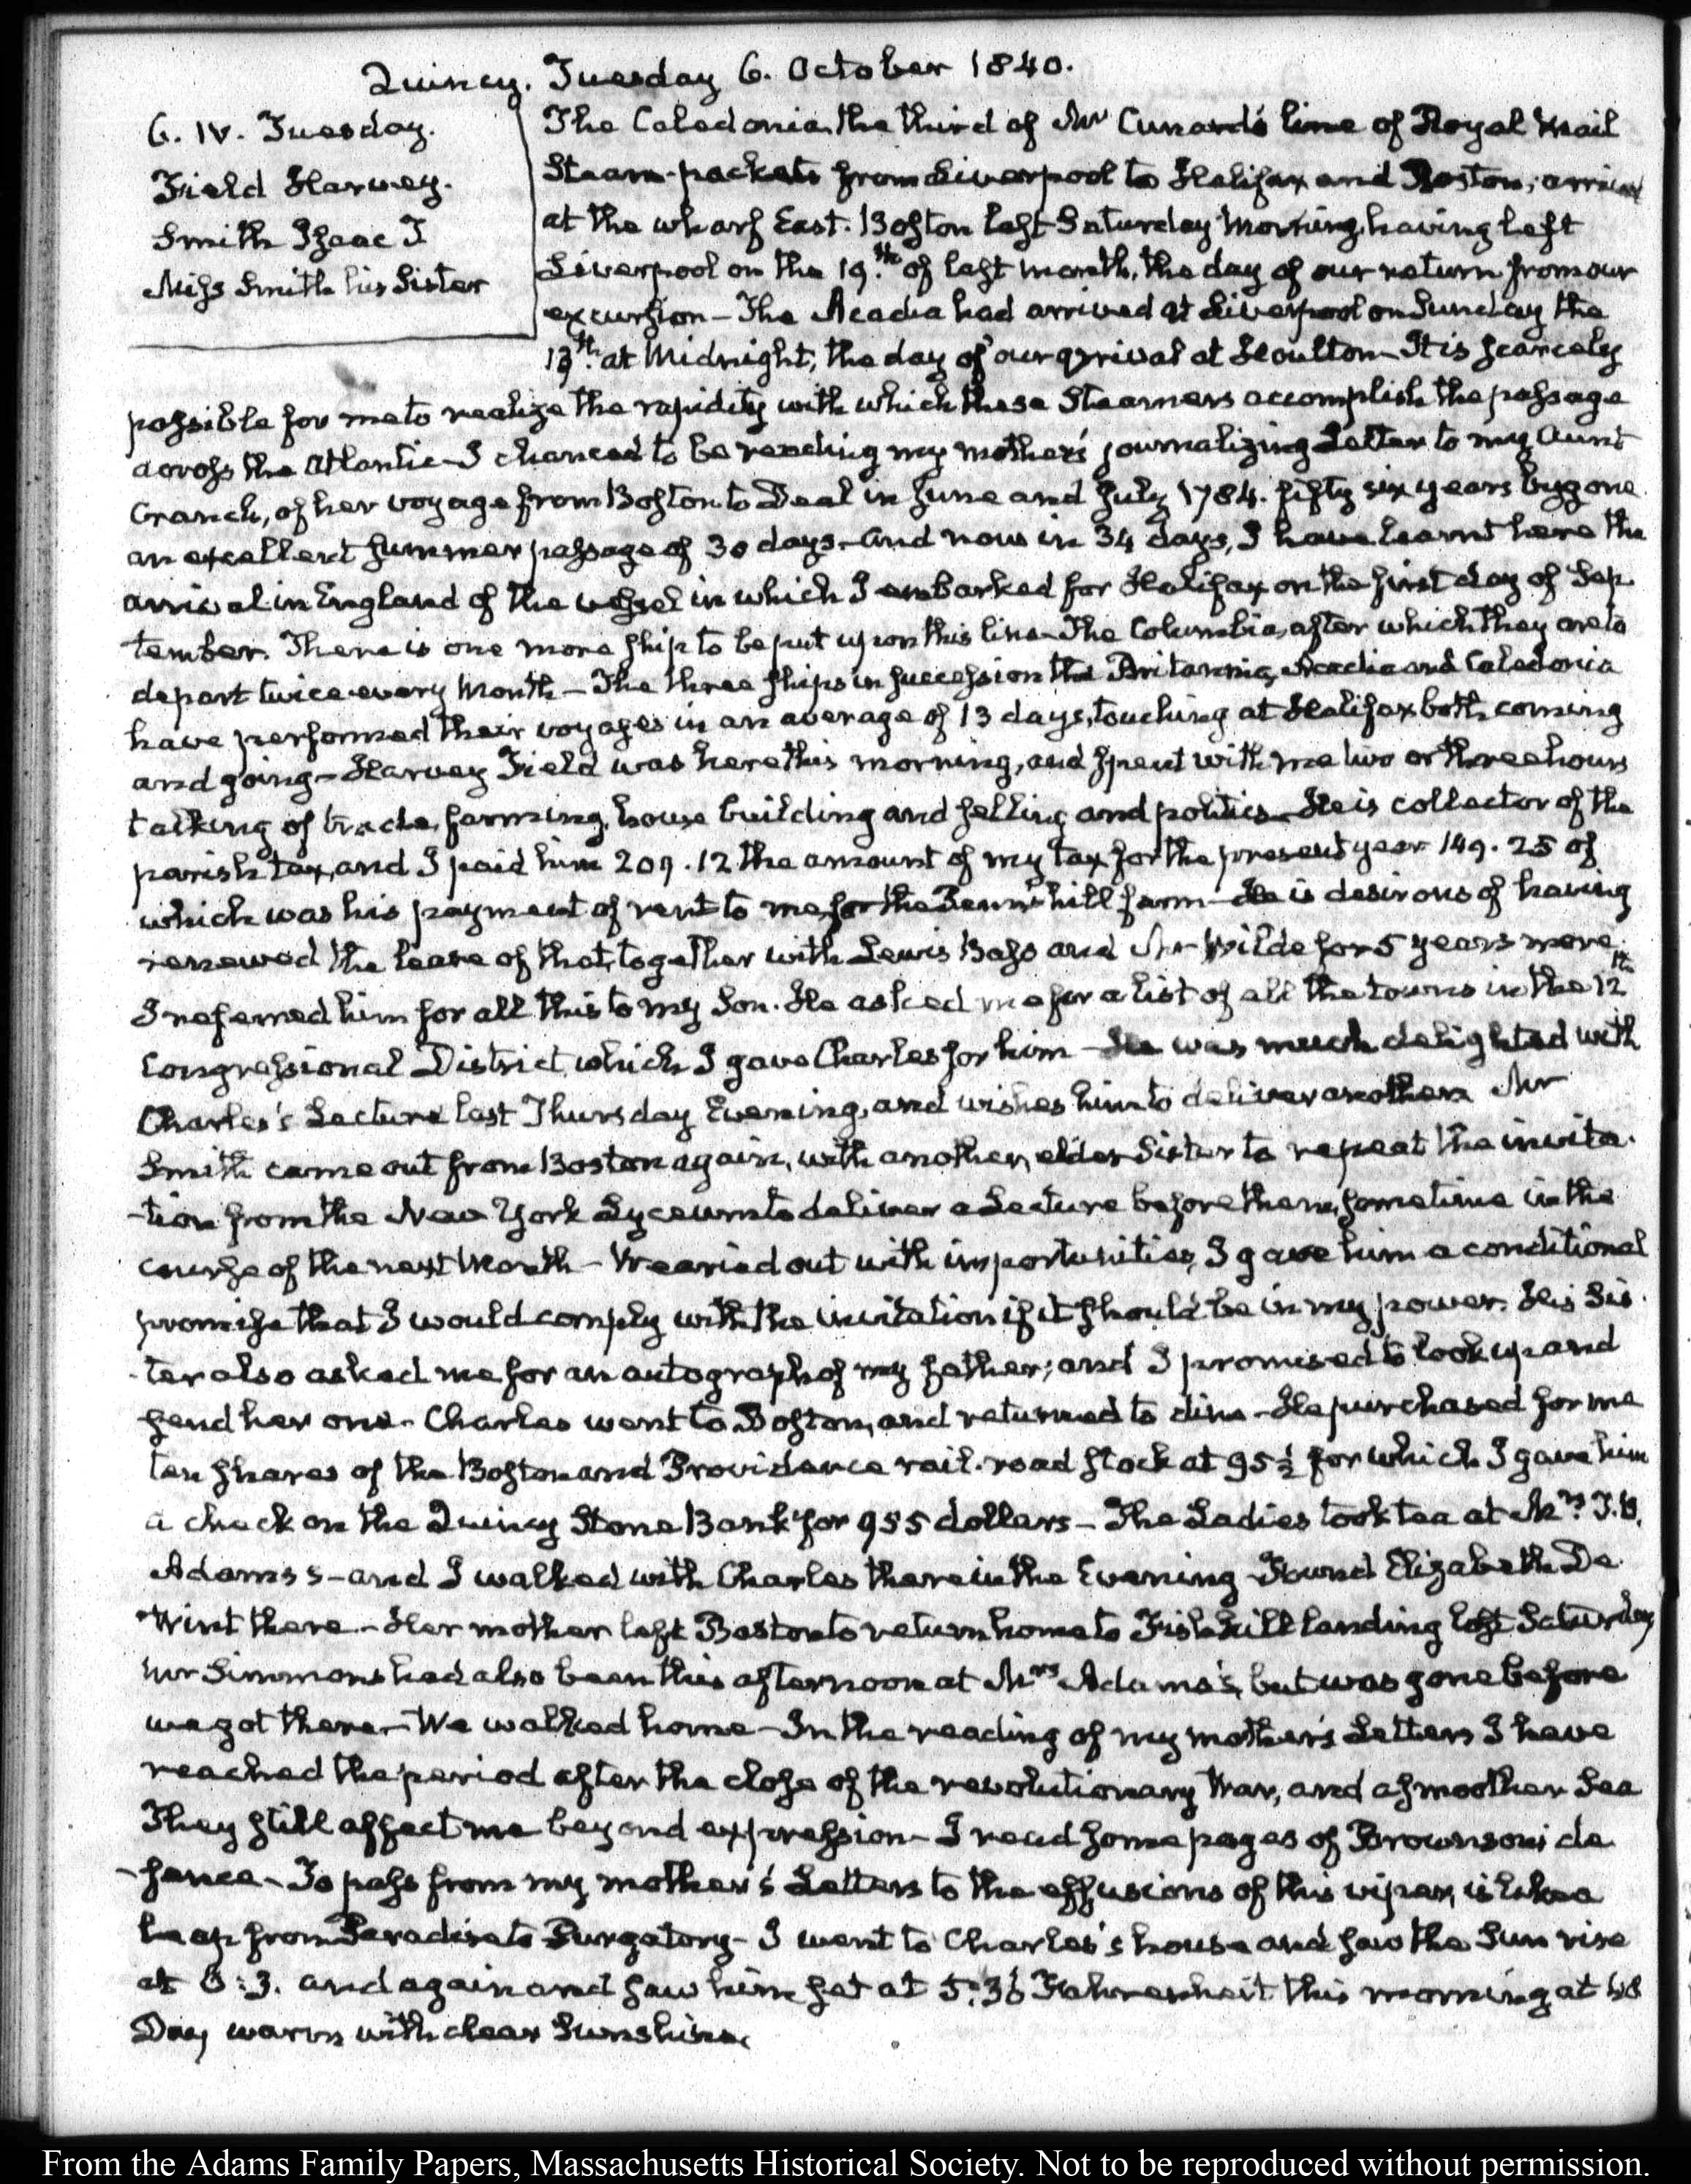 Quincy. Tuesday 6. October 1840.
6. IV. Tuesday.
Field Harvey.
Smith Isaac T
Miss Smith his Sister
The Caledonia, the third of Mr Cunard's line of Royal Mail
Steam-packets from Liverpool to Halifax and Boston, arrived
at the wharf East-Boston last Saturday Morning, having left
Liverpool on the 19.th of last month, the day of our return from our
excursion – The Acadia had arrived at Liverpool on Sunday the
13th. at Midnight, the day of our arrival at Houlton – It is scarcely
possible for me to realize the rapidity with which these Steamers accomplish the passage
across the Atlantic – I chanced to be reading my mother's journalizing Letter to my Aunt
Cranch, of her voyage from Boston to Deal in June and July 1784. fifty six years bygone
an excellent summer passage of 30 days – and now in 34 days, I have learnt here the
arrival in England of the vessel in which I embarked for Halifax on the first day of Sep
tember. There is one more ship to be put upon this line – The Columbia, after which they are to
depart twice every Month – The three ships in succession the Britannia, Acadia and Caledonia
have performed their voyages in an average of 13 days, touching at Halifax both coming
and going – Harvey Field was here this morning, and spent with me two or three hours
talking of trade, farming, house building and selling and politics – He is collector of the
parish tax, and I paid him 209.12 the amount of my tax for the present year 149.25 of
which was his payment of rent to me for the Penn's hill farm – He is desirous of having
renewed the lease of that, together with Lewis Bass and Mr Wilde for 5 years more
I referred him for all this to my Son. He asked me for a list of all the towns in the 12th
Congressional District, which I gave Charles for him – He was much delighted with
Charles's Lecture last Thursday Evening, and wishes him to deliver another. Mr
Smith came out from Boston again, with another, elder Sister to repeat the invita-
-tion from the New York Lyceum to deliver a Lecture before them, sometime in the
course of the next Month – Wearied out with importunities, I gave him a conditional
promise that I would comply with the invitation if it should be in my power. His Sis-
-ter also asked me for an autograph of my father; and I promised to look up and
send her one – Charles went to Boston, and returned to dine – He purchased for me
ten shares of the Boston and Providence rail-road stock at 95½ for which I gave him
a check on the Quincy Stone Bank for 955 dollars – The Ladies took tea at Mrs. T. B.
Adams's – and I walked with Charles there in the Evening – Found Elizabeth De
Wint there – Her mother left Boston to return home to Fishkill landing last Saturday
Mr Simmons had also been this afternoon at Mrs Adams's, but was gone before
we got there – We walked home – In the reading of my mother's Letters I have
reached the period after the close of the revolutionary War, and a smoother Sea
They still affect me beyond expression – I read some pages of Brownson's de
-fence – To pass from my mother's Letters to the effusions of this viper, is like a
leap from Paradise to Purgatory – I went to Charles's house and saw the Sun rise
at 6:3. and again and saw him set at 5:36 Fahrenheit this morning at 48
Day warm with clear Sunshine.
From the Adams Family Papers, Massachusetts Historical Society. Not to be reproduced without permission.